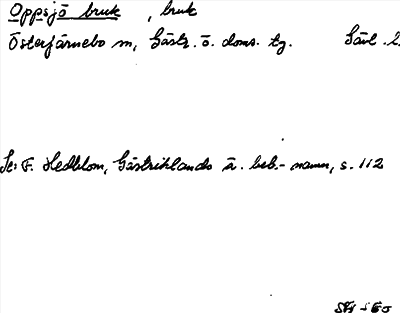 Oppsjö bruk, bruk
Österfärnebo sn, Gästr. ö. doms. tg. Gävl. l.
Se: F. Hedblom, Gästriklands ä. beb.- namn, s. 112